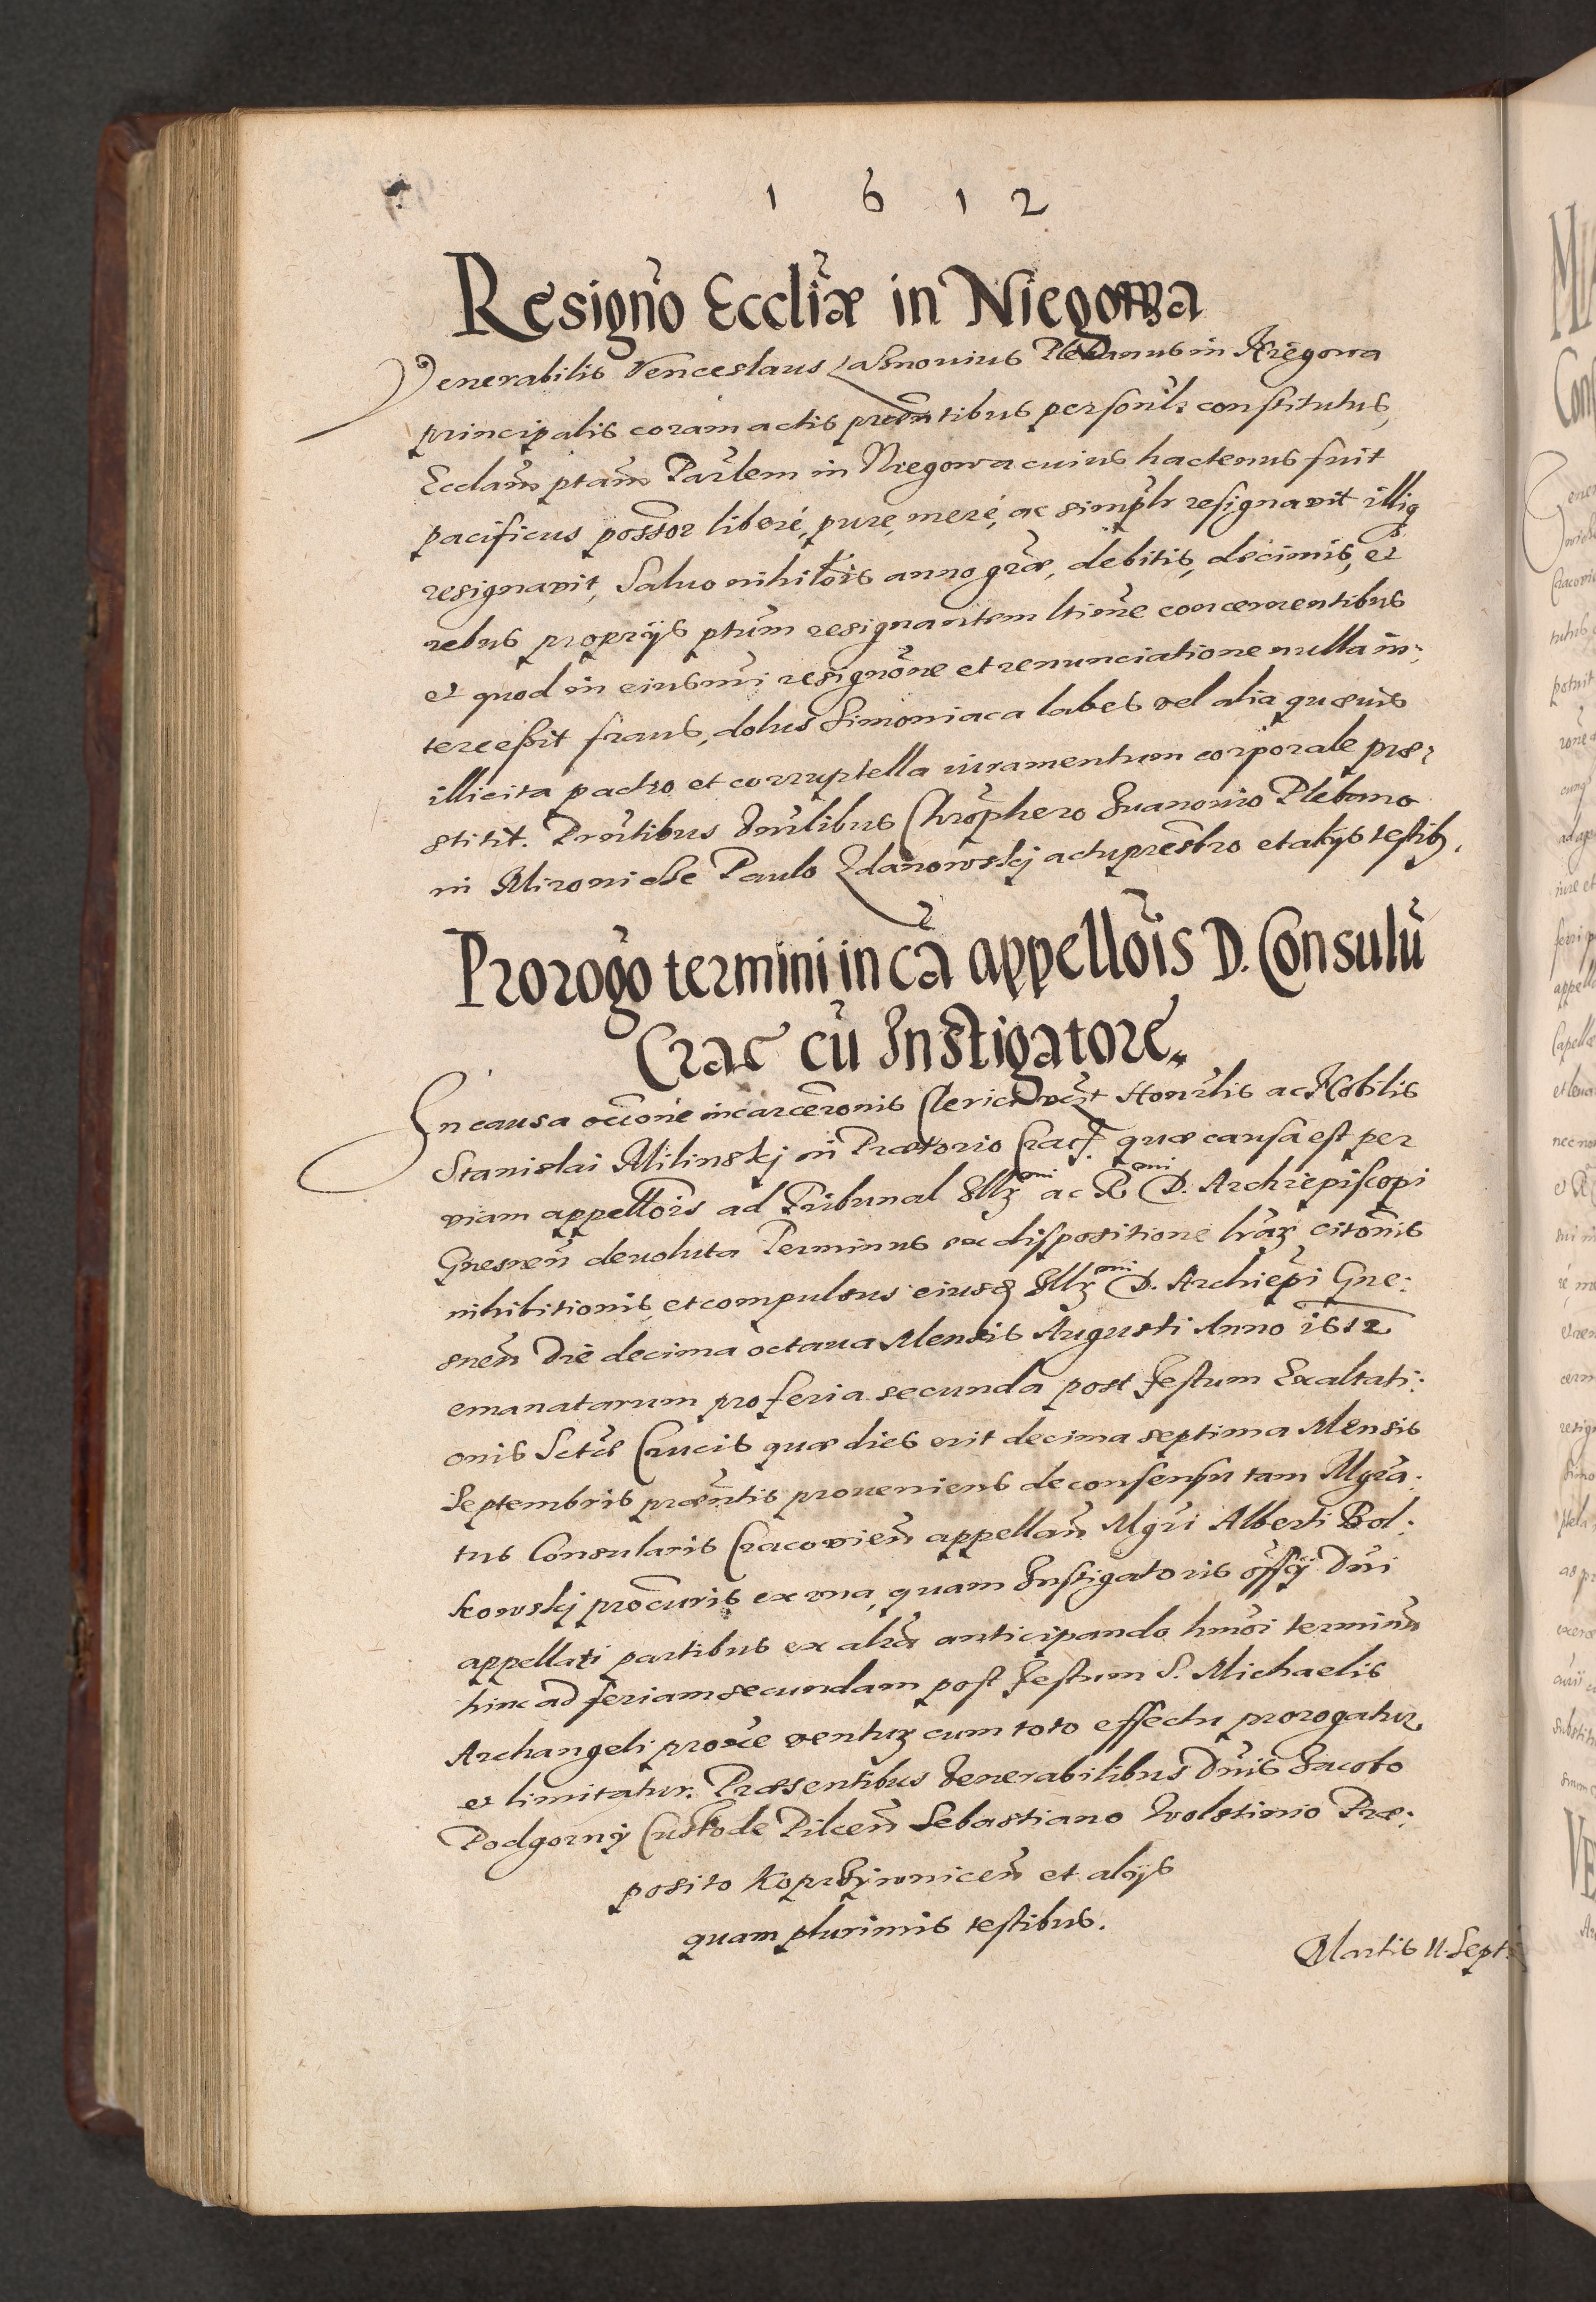 1 6 1 2
Resigno Eccliæ in Niegowa
Venerabilis Venceslaus Lasznouius Plebanus in Niegowa
principalis coram actis præntibus personlr constitutus,
Ecclam ptam Parlem in Niegowa cuius hactenus fuit
pacificus possor liberé, pure, meré, ac simplr resignavit illiq
resignavit, Saluo nihilois anno græ, debitis, decimis, et
rebus proprijs ptum resignantem ltime concernentibus
et quod in eiusmi resignone et renunciatione nulla in:
terceßit fraus, dolus Simoniaca labes vel alia quæuis
illicita pactio et corruptella iuramentum corporale præ:
stitit. Prntibus Vnrlibus Chrophero Iuanouio Plebano
in Paulo Zdanowskj actuprestro et alijs testib.
Prorogo termini in cā appellois D. Consulū
Crac cū Instigatore.
In causa occione incarceronis Clerici vt Honrlis ac Nobilis
Stanislai Milinskj in Prætorio Crac quæ causa est per
viam appellois ad Tribunal Illmi ac Rmi D. Archiepiscopi
Gnesnen deuoluta Terminus ex dispositione lrar citonis
inhibitionis, et compulsus eiusd Illmi D. Archiepi Gne:
snen Die decima octaua Mensis Augusti Anno 1612
emanatarum pro feria secunda post festum Exaltati:
onis Sctæ Crucis quæ dies erit decima septima Mensis
Septembris præntis proueniens de consensu tam Mgra:
tus Consularis Cracovien appellan Mgri Alberti Bol:
kowskj procuris ex vna, quam Instigatoris offij Dni
appellati partibus ex altra anticipando hmoi terminū
hinc ad feriam secundam post festum S. Michaelis
Archangeli proxe ventur cum toto effectu prorogatur
et limitatur. Præsentibus Venerabilibus Dnis Iacobo
Podgorny Custode Pilcen Sebastiano Wolstinio Præ:
posito Koprzywnicen et alijs
quam plurimis testibus.
Martis 11. Septr